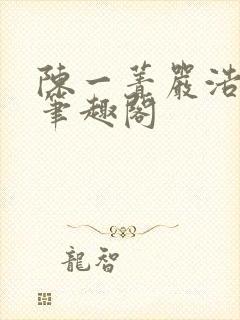 陳一菁嚴浩
筆趣閣
龍智